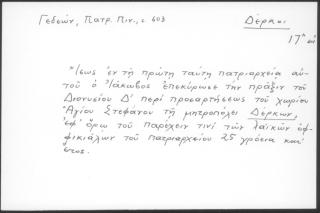 Γεδεών, Πατρ. Πιν., σ. 603
Δέρκοι
17ος αἰ.
"Ἴσως ἐν τῇ πρώτῃ ταύτῃ πατριαρχείᾳ αὐ-
τοῦ ὁ Ἰάκωβος ἐπεκύρωσε τὴν πρᾶξιν τοῦ
Διονυσίου Δ' περὶ προσαρτήσεως τοῦ χωρίου
Ἁγίου Στεφάνου τῇ μητροπόλει Δέρκων,
ἐφ' ὅρῳ τοῦ παρέχειν τινὶ τῶν λαϊκῶν ὀφ-
φικιάλων τοῦ πατριαρχείου 25 γρόσια κατ'
ἔτος.